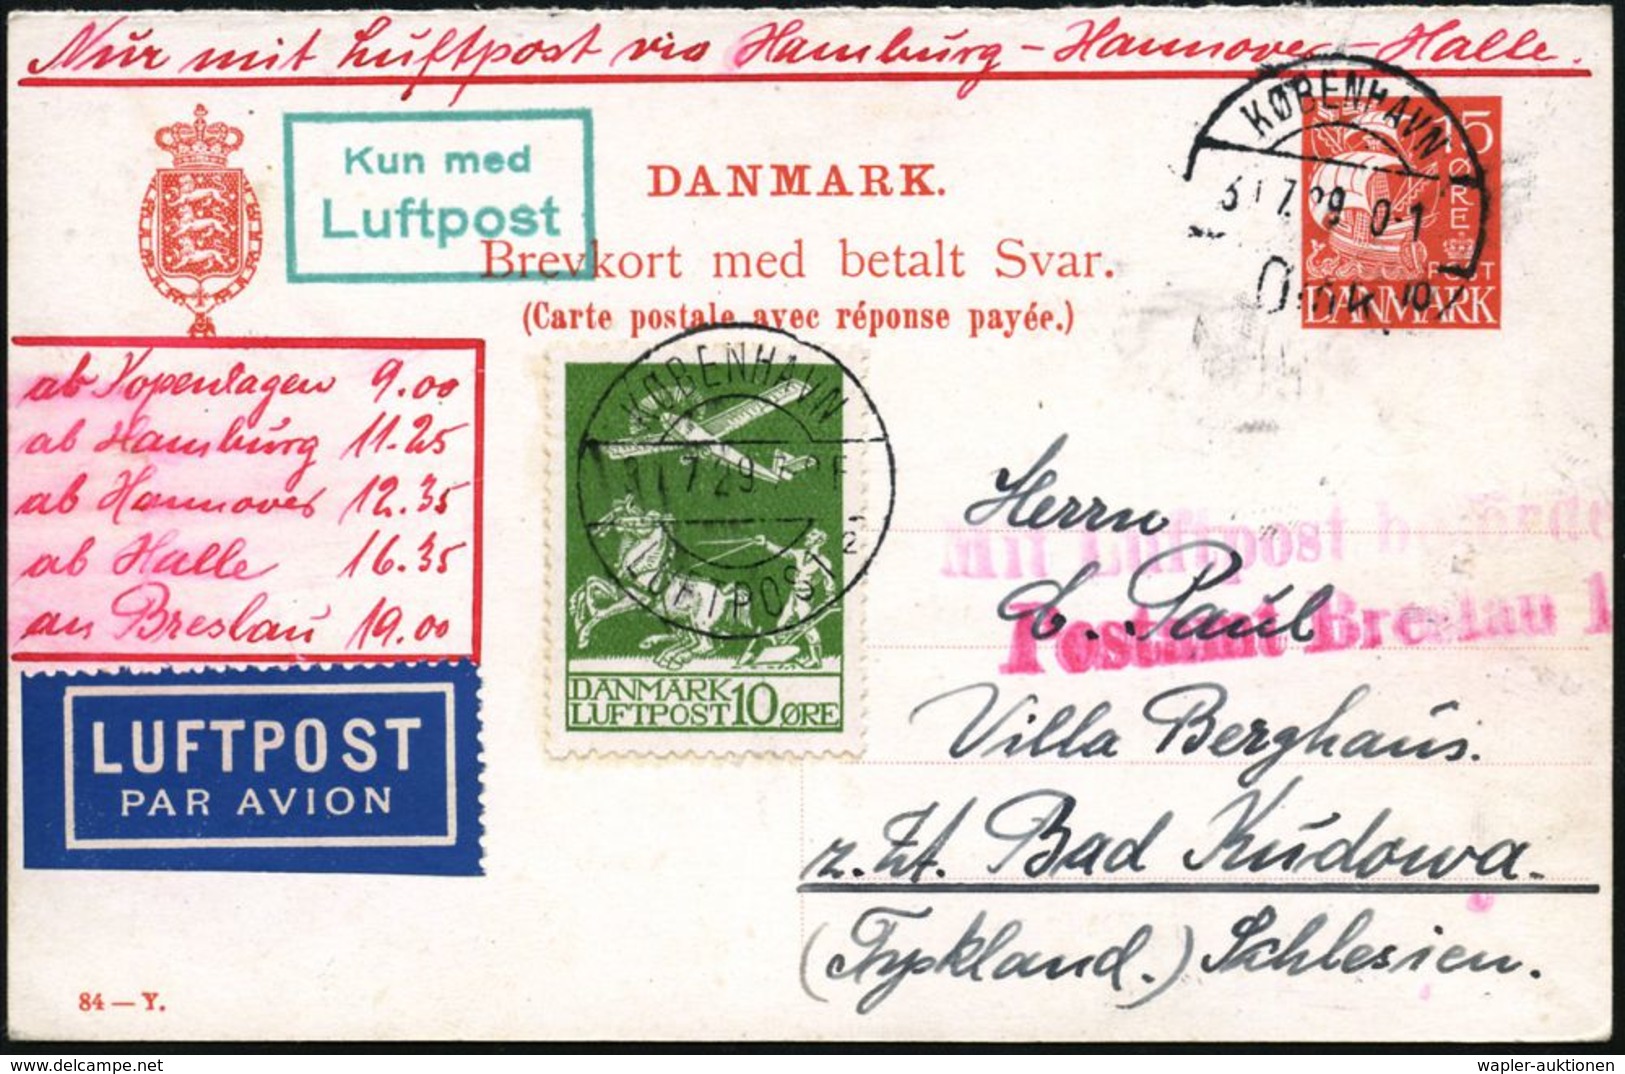 Nur mit Luftpost via Hamburg - Hannover - Halle.
Kun med
Luftpost
DANMARK.
Brevkort med betalt Svar.
(Carte postale avec réponse payée.)
KØBENHAVN
31.7.29 0-1
15
ØRE
POST
DANMARK
ab Kopenhagen 9.00
ab Hamburg 11.25
ab Hannover 12.35
ab Halle 16.35
an Breslau 19.00
KØBENHAVN
31.7.29
2
LUFTPOST
DANMARK
LUFTPOST 10 ØRE
LUFTPOST
PAR AVION
Mit Luftpost
Postamt Breslau 1
Herrn
C. Paul
Villa Berghaus.
z. Zt. Bad Kudowa.
(Tyskland.) Schlesien.
84 — Y.
wapler-auktionen